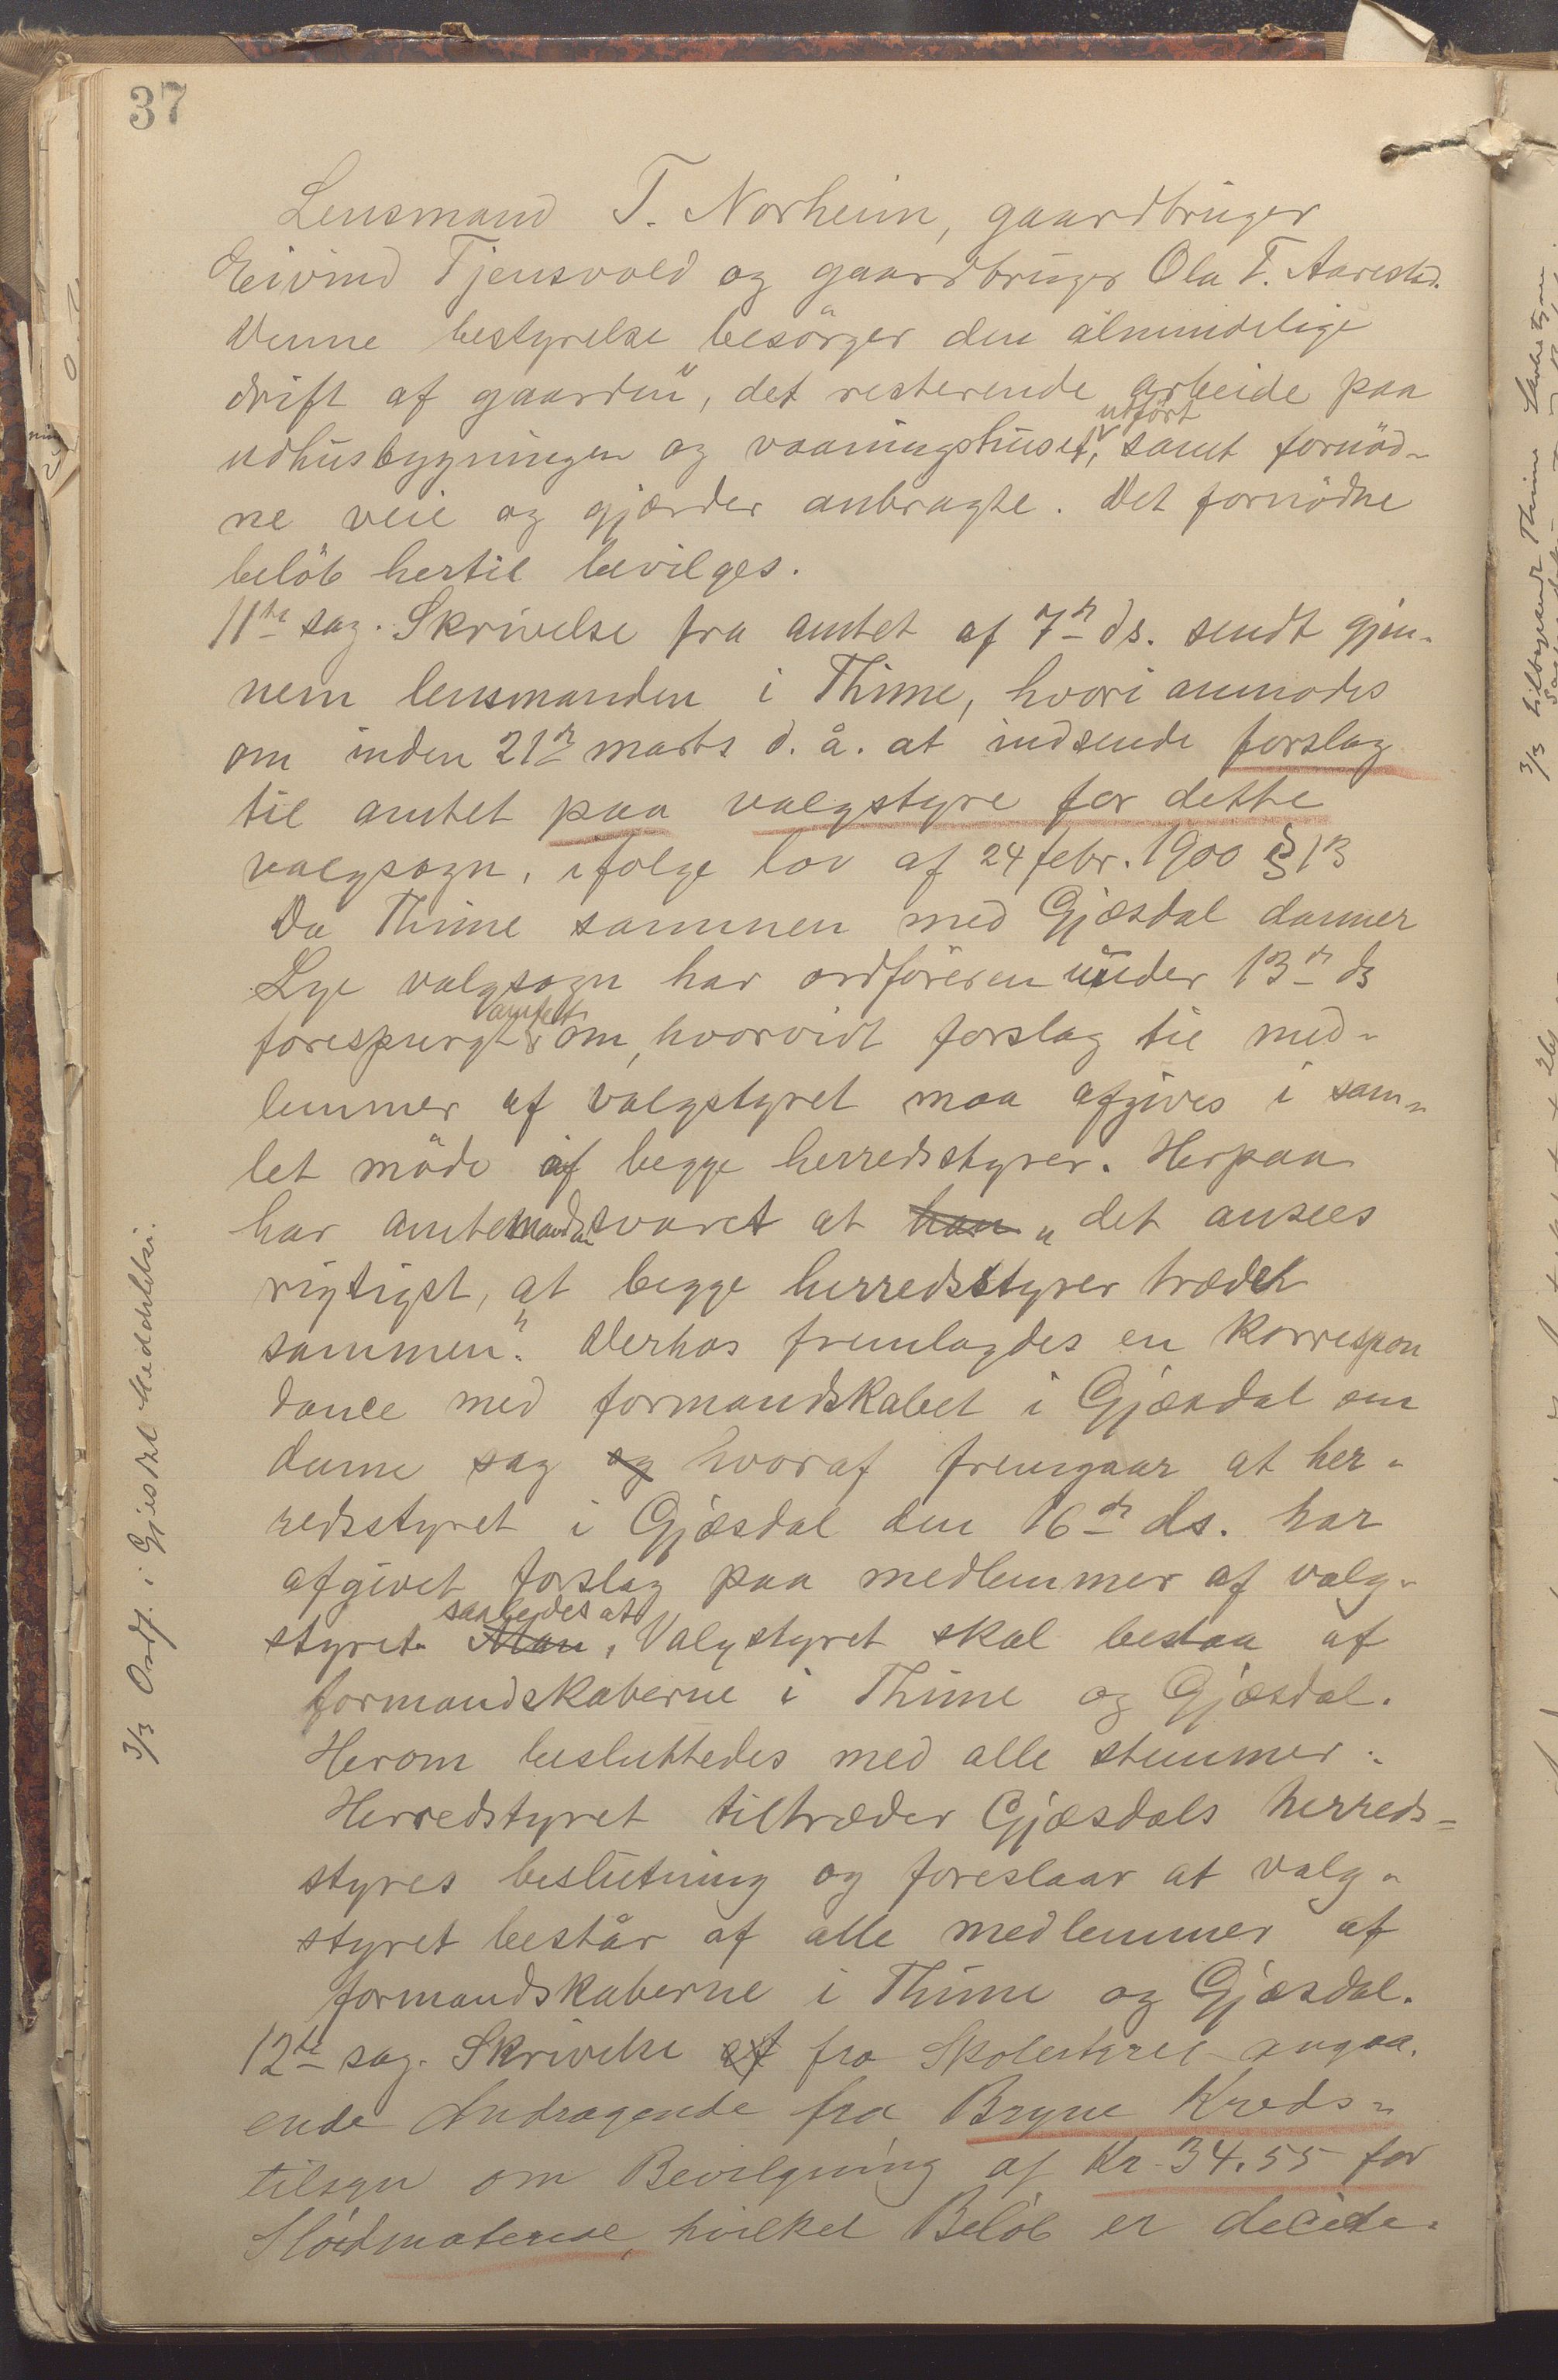 37
Lensmand T. Norheim, gaardbruger
Eivind Tjensvold og gaardbruger Ola T. Aarestad.
Denne bestyrelse besörger den almindelige
drift af gaarden, det resterende arbeide paa
udhusbygningen og vaaningshuset, utfört samt fornöd-
ne veie og gjærder anbragte. Det fornödne
belöb hertil bevilges.
11te sag. Skrivelse fra amtet af 7de ds. sendt gjen-
nem lensmanden i Thime, hvori anmodes
om inden 21de marts d. å. at indsende forslag
til amtet paa valgstyre for dette
valgsogn, ifølge lov af 24 febr. 1900 § 13
Da Thime sammen med Gjæsdal danner
Lye valgsogn har ordföreren under 13de ds
forespurgt amtet om, hvorvidt forslag til med-
lemmer af valgstyret maa afgives i sam-
let möde af begge herredsstyrer. Herpaa
har amtmanden svaret at han „det ansees
rigtigst, at begge herredsstyrer træder
sammen." Derhos fremlagdes en korrespon
dance med formandskabet i Gjæsdal om
denne sag og hvoraf fremgaar at her-
redsstyret i Gjæsdal den 16de ds. har
afgivet forslag paa medlemmer af valg-
styret saaledes at Man, Valgstyret skal bestaa af
formandskaberne i Thime og Gjæsdal.
Herom besluttedes med alle stemmer:
Herredstyret tiltræder Gjæsdals herreds-
styres beslutning og foreslaar at valg-
styret består af alle medlemmer af
formandskaberne i Thime og Gjæsdal.
12te sag. Skrivelse af fra Skolestyret angaa-
ende Andragende fra Bryne Kreds-
tilsyn om Bevilgning af Kr. 34.55 for
Slöidmateriel, hvilket Belöb er decide-
3/3 Ordf. i Gjesdal Meddelelse.
3/3 tilbagesendt Thime Skolestyre